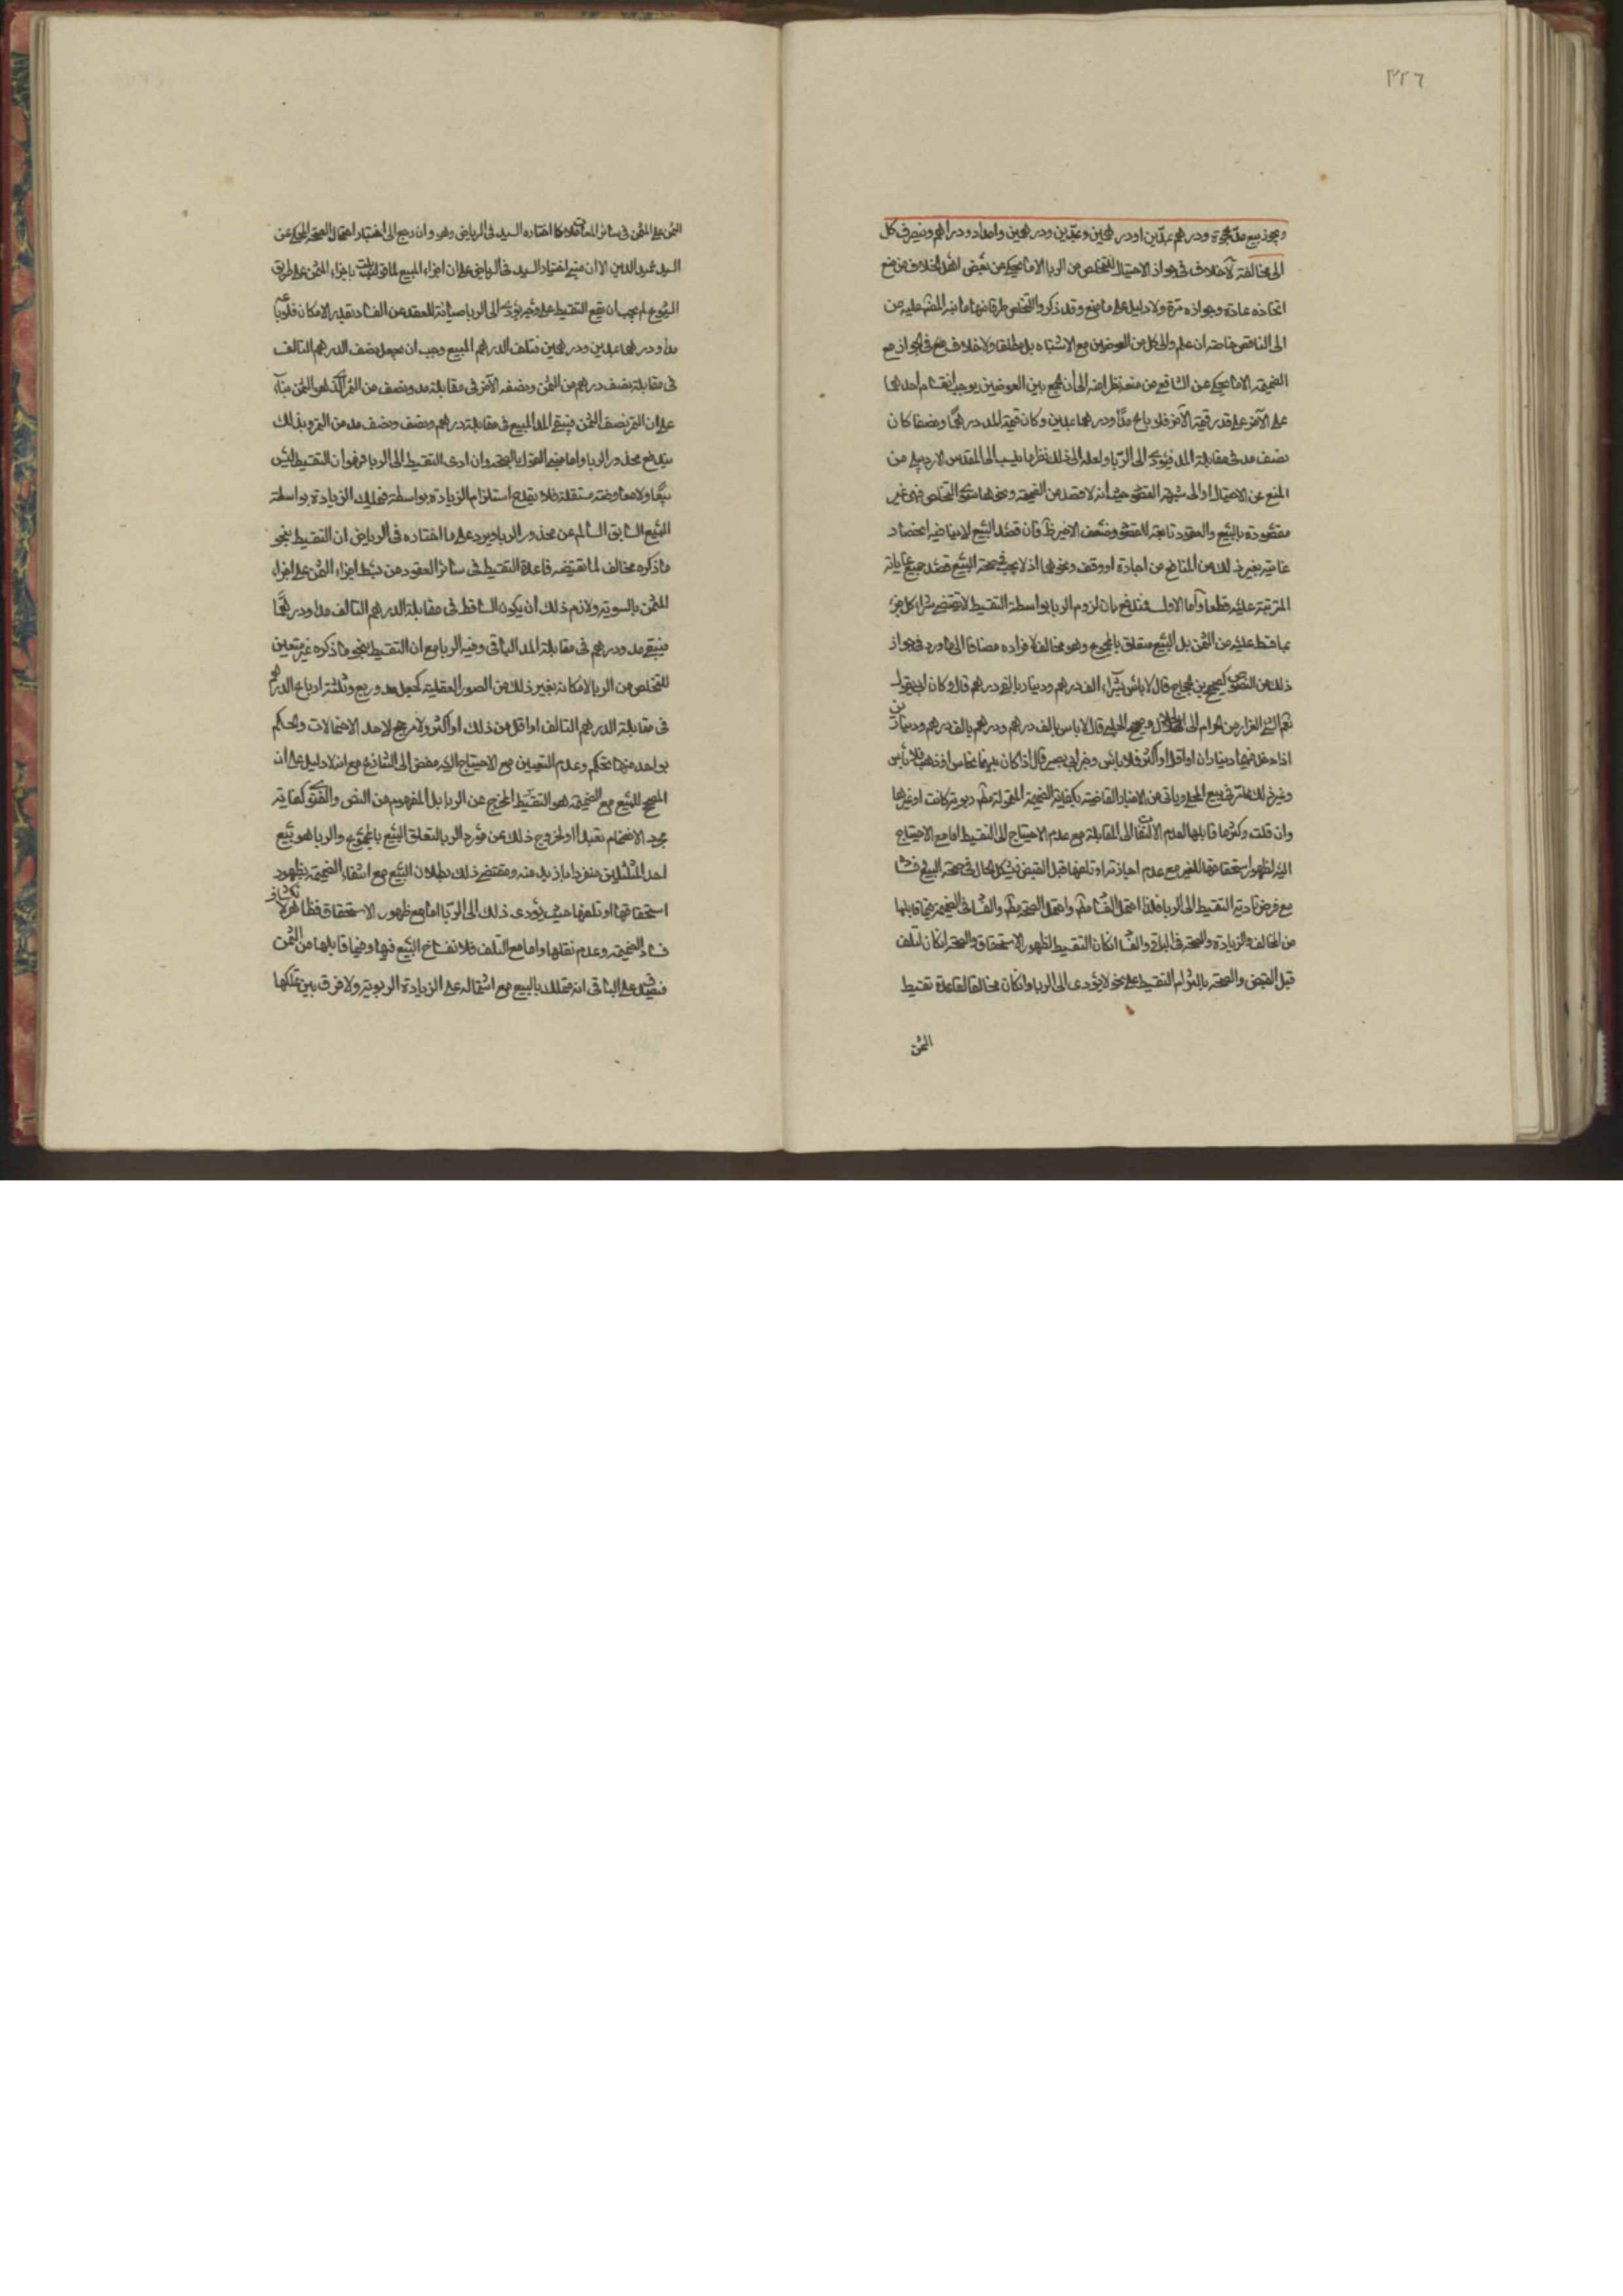 ٣٢٦
ويجوز بيع مد عجوة ودرهم بمدّين او درهمين وبمدّين ودرهمين وامداد ودراهم ويصرف كل
الى مخالفه لا خلاف في جواز الاحتيال للتخلص من الربا الا ما يحكى عن بعض اهل الخلاف من منع
اتخاذه عادة وجوازه مرة ولا دليل على ما منع وقد ذكروا للتخلص طرقا منها ما نبه المصنف عليه من
الى الناقص خاصة ان علم والى كل من العوضين مع الاشتباه بل مطلقا ولا خلاف في الجواز مع
الضميمة الا ما يحكى عن الشافعي من منعه نظرا منه الى ان الجمع بين العوضين يوجب انقسام احدهما
على الآخر على قدر قيمة الآخر فلو باع مدّا ودرهما بمدين وكان قيمة المد درهما ونصفا كان
نصف مد في مقابلة المد فيؤدى الى الرّبا ولعله الى ذلك نظر ما ينسب الى المقدس الاردبيلي من
المنع عن الاحتيال او الى شبهة القصد حيث انه لا قصد من الضميمة ونحوها سوى التخلص فهى غير
مقصودة بالبيع والعقود تابعة للقصود وضعف الاخير ظ فان قصد البيع لا ينافيه انحصار
غايته بغير ذلك من المنافع من اجارة او وقف ونحوهما اذ لا يجب في صحة البيع قصد جميع غاياته
المترتبة عليه قطعا واما الاول فمندفع بان لزوم الربا بواسطة التقسيط لا يقتضى شراء كل جزء
بما قسط عليه من الثمن بل البيع متعلق بالمجموع وهو مخالف لافراده مضافا الى ما ورد في جواز
ذلك من النصوص كصحيح بن الحجاج قال لا بأس بشراء الف درهم ودينار بالفي درهم قال وكان ابي يقول
نعم الشئ الفرار من الحرام الى الحلال وصحيح الحلبي قال لا باس بالف درهم ودرهم بالف درهم ودينارين
اذا دخل فيها ديناران او اقل او اكثر فلا بأس وخبر ابي بصير قال اذا كان بينهما نحاس او ذهب فلا بأس
وغير ذلك مما ياتى من الاخبار القاضية بكفاية الضميمة المتمولة مطلقا ربوية كانت او غيرها
وان قلت وكثر ما قابلها لعدم الالتفات الى المقابلة مع عدم الاحتياج الى التقسيط اما مع الاحتياج
اليه لظهور استحقاقها للغير مع عدم اجازته او تلفها قبل القبض فيشكل الحال في صحة البيع وفساده
مع فرض تادية التقسيط الى الربا فلذا احتمل الفساد مطلقا واحتمل الصحة مطلقا والفساد في الضميمة فيما قابلها
من المخالف والزيادة والصحة في الباقى والفساد ان كان التقسيط لظهور الاستحقاق والصحة ان كان لتلف
قبل القبض والصحة بالتزام التقسيط على نحو لا يؤدى الى الربا وان كان مخالفا لقاعدة تقسيط
الثمن
الثمن على المثمن في سائر المعاملات كما اختاره السيد في الرياض وهو وان رجع الى اختيار احتمال الصحة المحكى عن
السيد عميد الدين الا ان مبنى اختيار السيد في الرياض على ان اجزاء المبيع لما قوبلت باجزاء الثمن على طريق
الشيوع لم يجب ان يقع التقسيط على وجه يؤدى الى الربا صيانة للعقد عن الفساد بقدر الامكان فلو باع
مدا ودرهما بمدين ودرهمين فتلف الدرهم المبيع وجب ان يجعل نصف الدرهم التالف
في مقابلة نصف درهم من الثمن ونصفه الآخر في مقابلة مد ونصف من التمر الذي هو الثمن بناء
على ان التمر نصف الثمن فيبقى المد المبيع في مقابلة درهم ونصف ونصف مد من التمر وبذلك
يندفع محذور الربا واما مبنى القول بالصحة وان ادى التقسيط الى الربا فهو ان التقسيط ليس
بيعا ولا معاوضة مستقلة فلا يقدح استلزام الزيادة بواسطة تمليك الزيادة بواسطة
المبيع السابق السالم عن محذور الربا ويرد على ما اختاره في الرياض ان التقسيط بنحو
ما ذكره مخالف لما تقتضيه قاعدة التقسيط في سائر العقود من بسط اجزاء الثمن على اجزاء
المثمن بالسوية ولازم ذلك ان يكون الساقط في مقابلة الدرهم التالف مدا ودرهما
فيبقى مد ودرهم في مقابلة المد الباقى وفيه الربا مع ان التقسيط بنحو ما ذكره غير متعين
للتخلص من الربا لامكانه بغير ذلك من الصور العقلية كجعل مد وربع وثلثة ارباع الدرهم
في مقابلة الدرهم التالف او اقل من ذلك او اكثر ولا مرجح لاحد الاحتمالات والحكم
بواحد منها تحكم وعدم التعيين مع الاحتياج اليه مفض الى التنازع مع انه لا دليل على ان
المصحح للبيع مع الضميمة هو التقسيط المخرج عن الربا بل المفهوم من النص والفتوى كفاية
مجرد الانضمام تعبدا او لخروج ذلك عن مورد الربا لتعلق البيع بالمجموع والربا هو بيع
احد المثلين منفردا بازيد منه ومقتضى ذلك بطلان البيع مع انتفاء الضميمة بظهور
استحقاقها او تلفها حيث يؤدى ذلك الى الرّبا اما مع ظهور الاستحقاق فظاهر لانكشاف
فساد الضميمة وعدم نقلها واما مع التلف فلانفساخ البيع فيها وفيما قابلها من الثمن
فيصدق على الباقى انه مملك بالبيع مع اشتماله على الزيادة الربوية ولا فرق بين تملكها